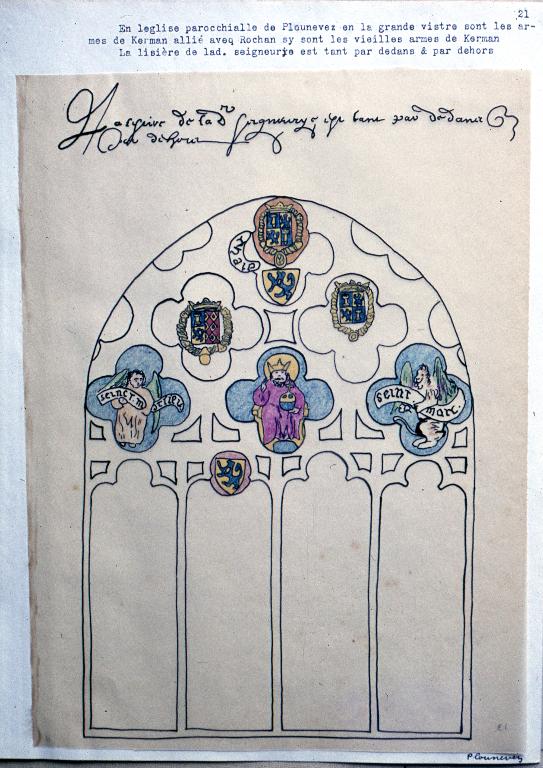 21
En leglise parocchialle de Plounevez en la grande vistre sont les ar-
mes de Kerman allié aveq Rochan sy sont les vieilles armes de Kerman
La lisière de lad. seigneurie est tant par dedans & par dehors
de lad seigneurye est tant par dedans
par dehors
seinct m
seinct
marc
P Lounevez